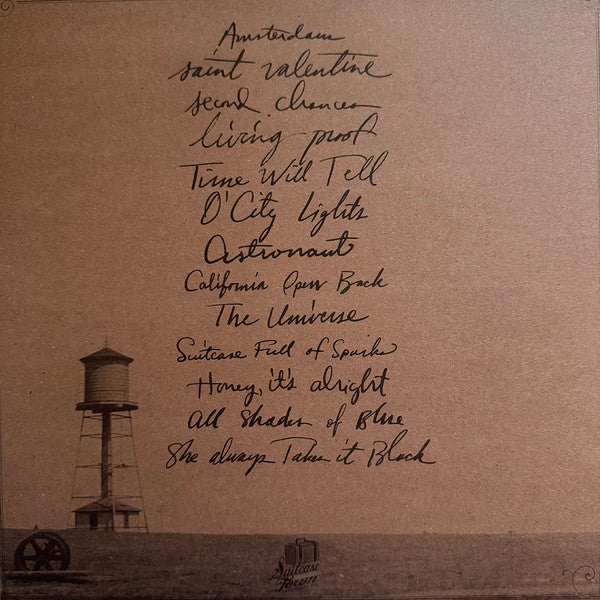 Amsterdam
saint valentine
second chances
living proof
Time Will Tell
O' City Lights
Astronaut
California Open Back
The Universe
Suitcase Full of Sparks
Honey, it's alright
All Shades of Blue
She always Takes it Black
Suitcase
Town